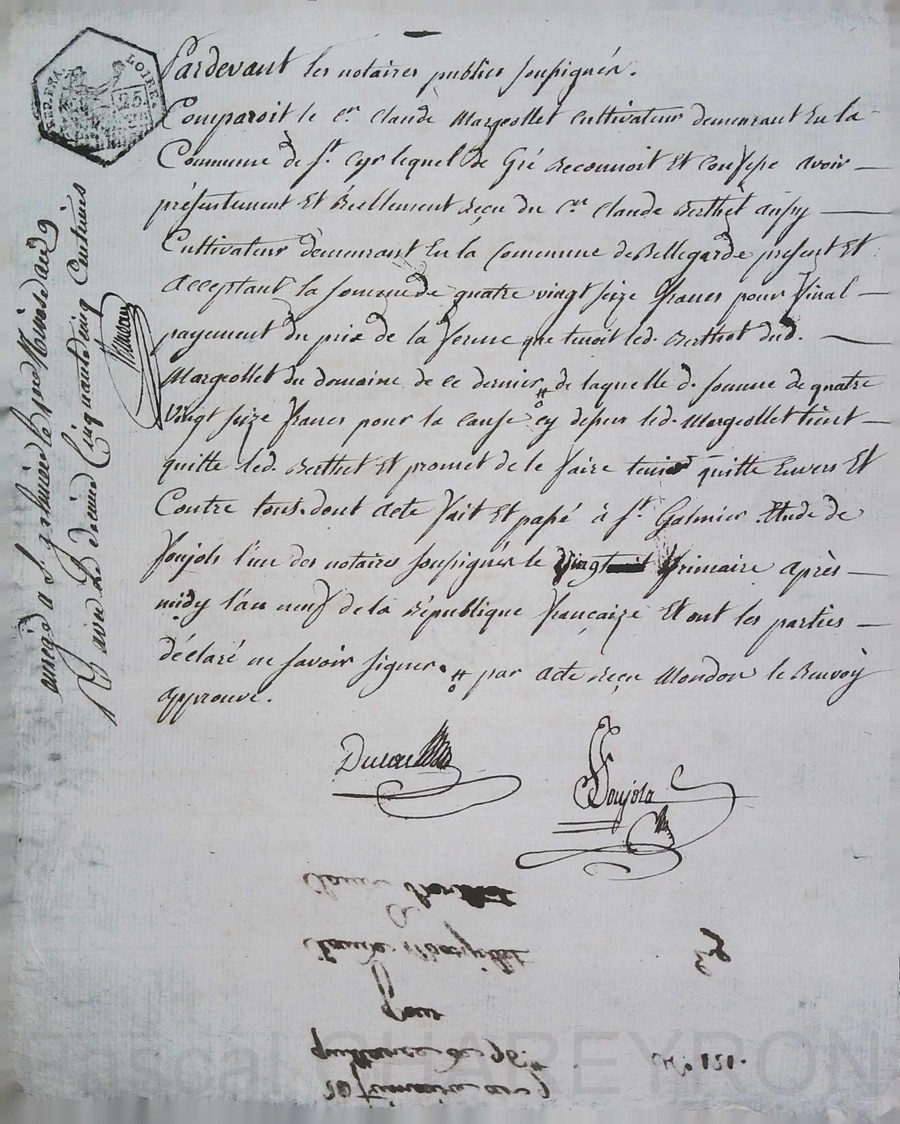 REP. FRA. LOIRE.
25
Pardevant les notaires publics soussignés.
Comparoit le cn. Claude Margeollet cultivateur demeurant En la
Commune de St. Cyr lequel de Gré Reconnoit Et Confesse avoir
présentement Et Réellement Reçu du cn. Claude Berthet aussy
Cultivateur demeurant En la Commune de Bellegarde present Et
acceptant la somme de quatre vingt seize francs pour final
payement du prix de la ferme que tenoit led. Berthet dud.
Margeollet du domaine de ce dernier, de laquelle d. somme de quatre
vingt seize francs pour la cause cy dessus led. Margeollet tient
quitte led. Berthet Et promet de le faire tenir quitte Envers Et
Contre tous. dont acte fait Et passé à St. Galmier Etude de
Soujols l'un des notaires soussignés le vingt frimaire après
midy l'an neuf de la République française Et ont les parties
déclaré ne savoir signer. par acte reçu Mondon le Renvoy
approuvé.
Soujols
Claude Berthet
a
Claude Margeollet
pour
quittance de 96
20 frimaire an 9
No. 121.